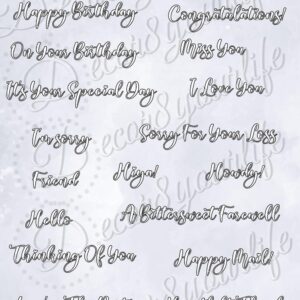 Happy Birthday
Congratulations!
On Your Birthday
Miss You
It's Your Special Day
I Love You
I'm sorry
Sorry For Your Loss
Friend
Hiya!
Howdy!
Hello
A Bittersweet Farewell
Thinking Of You
Happy Mail!